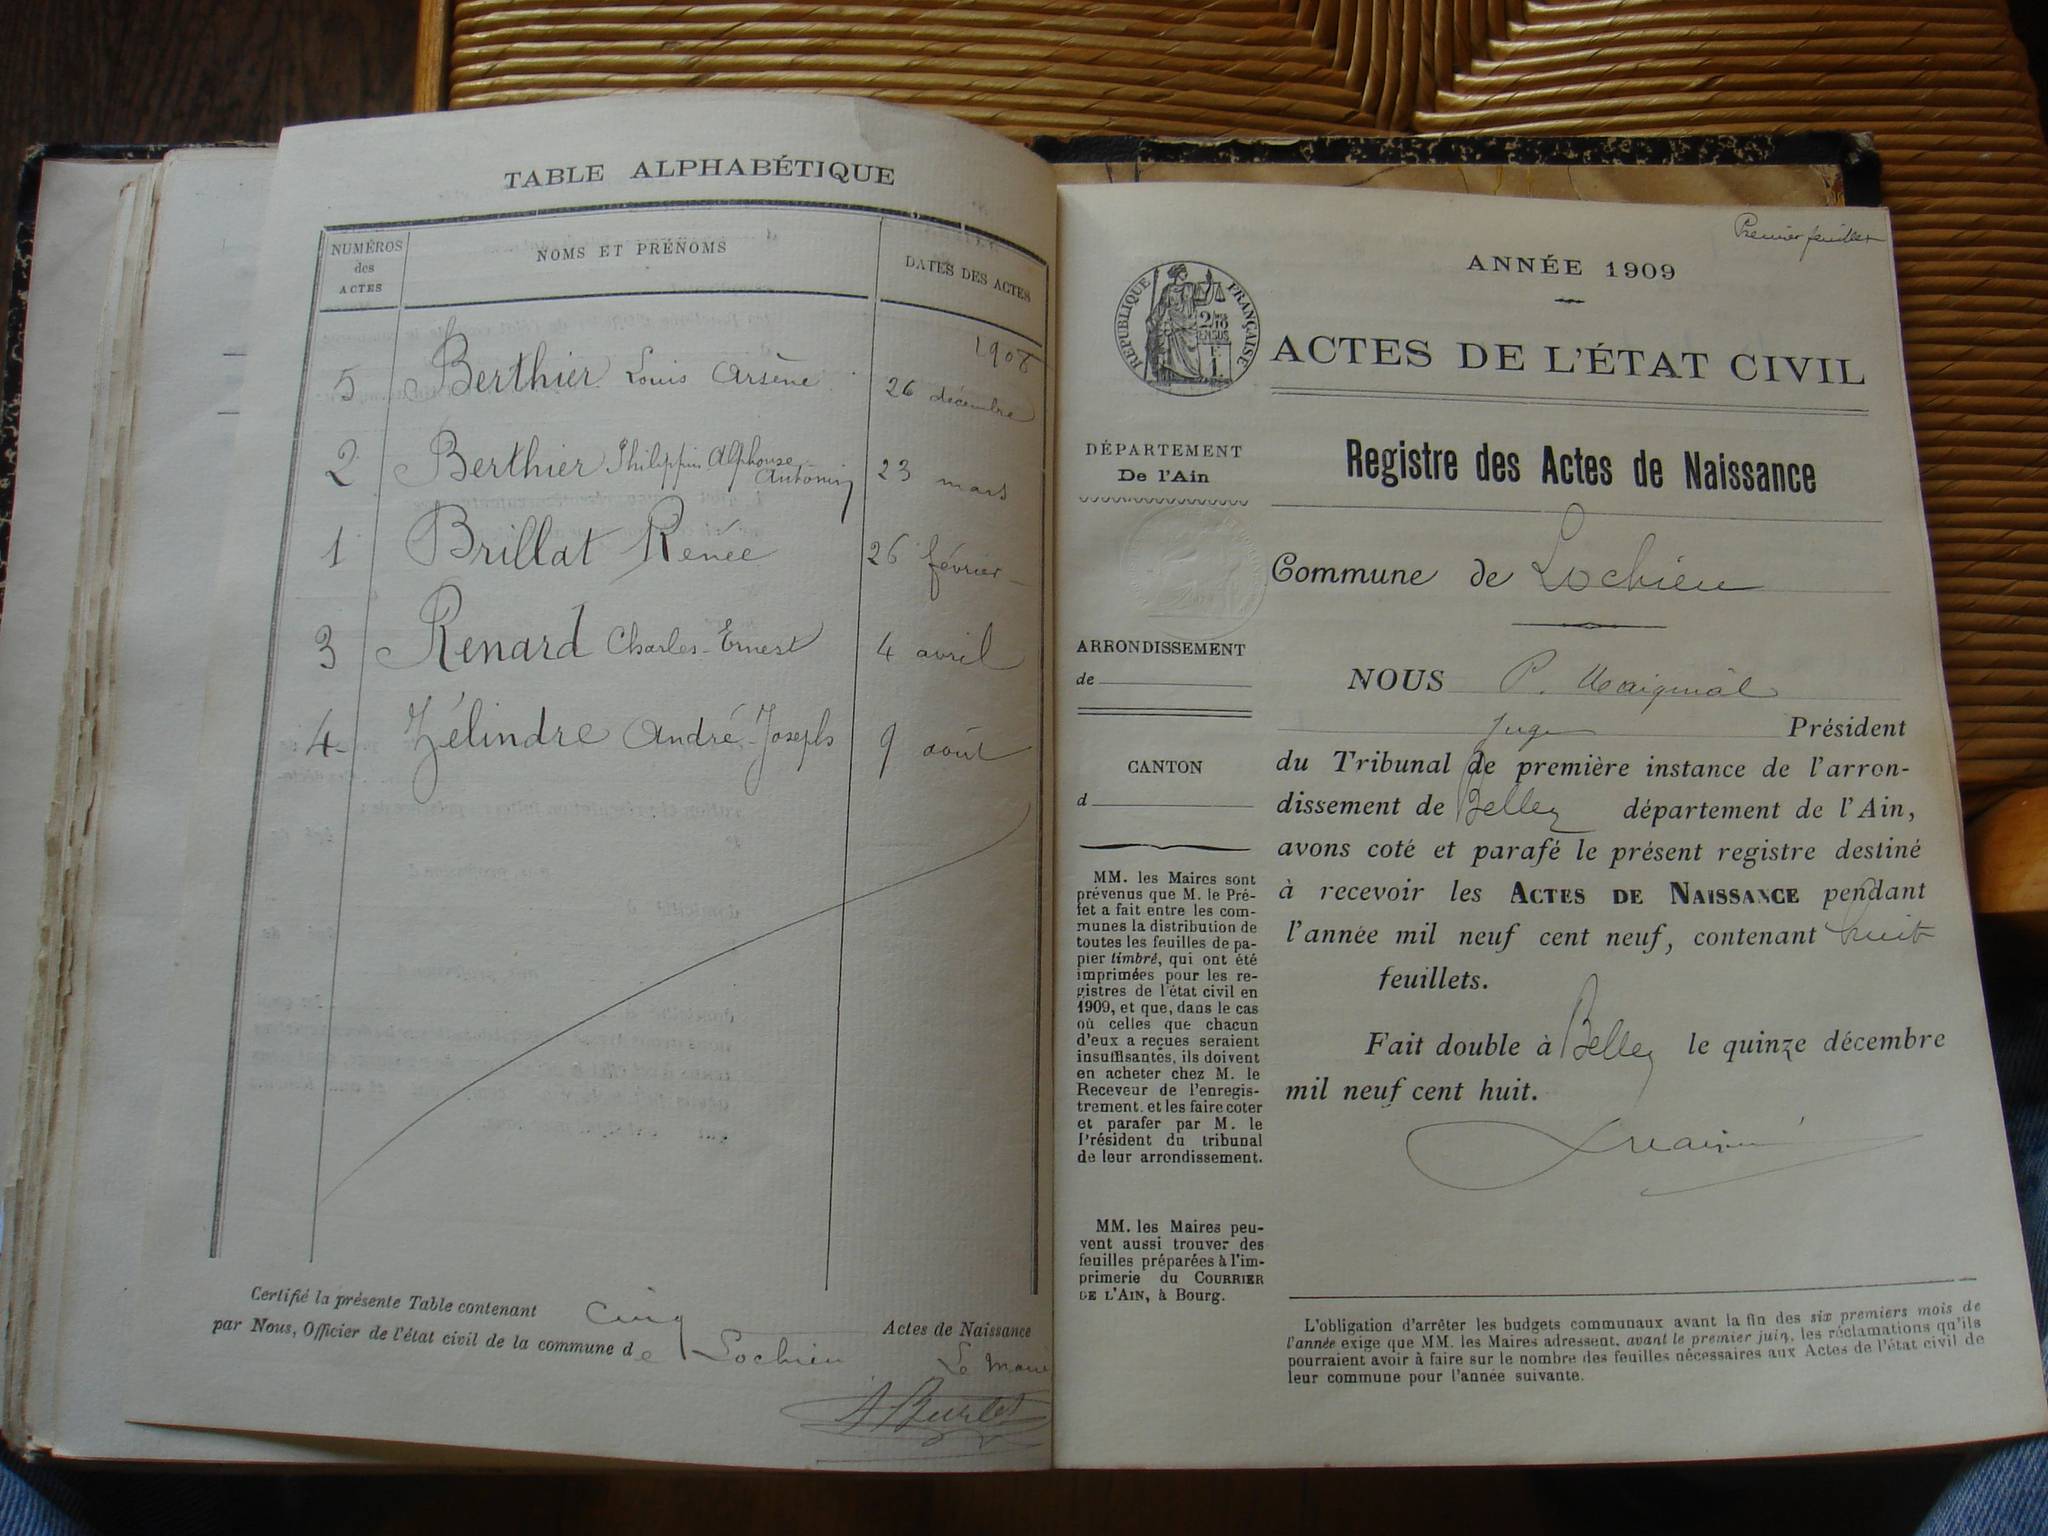 TABLE ALPHABÉTIQUE
NUMÉROS des ACTES
NOMS ET PRÉNOMS
DATES DES ACTES
1908
5 Berthier Louis Arsène 26 décembre
2 Berthier Philippin Alphonse Antonin 23 mars
1 Brillat Renée 26 février
3 Renard Charles-Ernest 4 avril
4 Zélindre André-Joseph 9 août
Certifié la présente Table contenant cinq Actes de Naissance
par Nous, Officier de l'état civil de la commune de Lochieu
Le Maire
Premier feuillet
ANNÉE 1909
RÉPUBLIQUE FRANÇAISE
ACTES DE L'ÉTAT CIVIL
DÉPARTEMENT
De l'Ain
ARRONDISSEMENT
de
CANTON
d
MM. les Maires sont
prévenus que M. le Pré-
fet a fait entre les com-
munes la distribution de
toutes les feuilles de pa-
pier timbré, qui ont été
imprimées pour les re-
gistres de l'état civil en
1909, et que, dans le cas
où celles que chacun
d'eux a reçues seraient
insuffisantes, ils doivent
en acheter chez M. le
Receveur de l'enregis-
trement, et les faire coter
et parafer par M. le
Président du tribunal
de leur arrondissement.
MM. les Maires peu-
vent aussi trouver des
feuilles préparées à l'im-
primerie du COURRIER
DE L'AIN, à Bourg.
Registre des Actes de Naissance
Commune de Lochieu
NOUS P.
Juge Président
du Tribunal de première instance de l'arron-
dissement de Belley département de l'Ain,
avons coté et parafé le présent registre destiné
à recevoir les ACTES DE NAISSANCE pendant
l'année mil neuf cent neuf, contenant huit
feuillets.
Fait double à Belley le quinze décembre
mil neuf cent huit.
L'obligation d'arrêter les budgets communaux avant la fin des six premiers mois de
l'année exige que MM. les Maires adressent, avant le premier juin, les réclamations qu'ils
pourraient avoir à faire sur le nombre des feuilles nécessaires aux Actes de l'état civil de
leur commune pour l'année suivante.